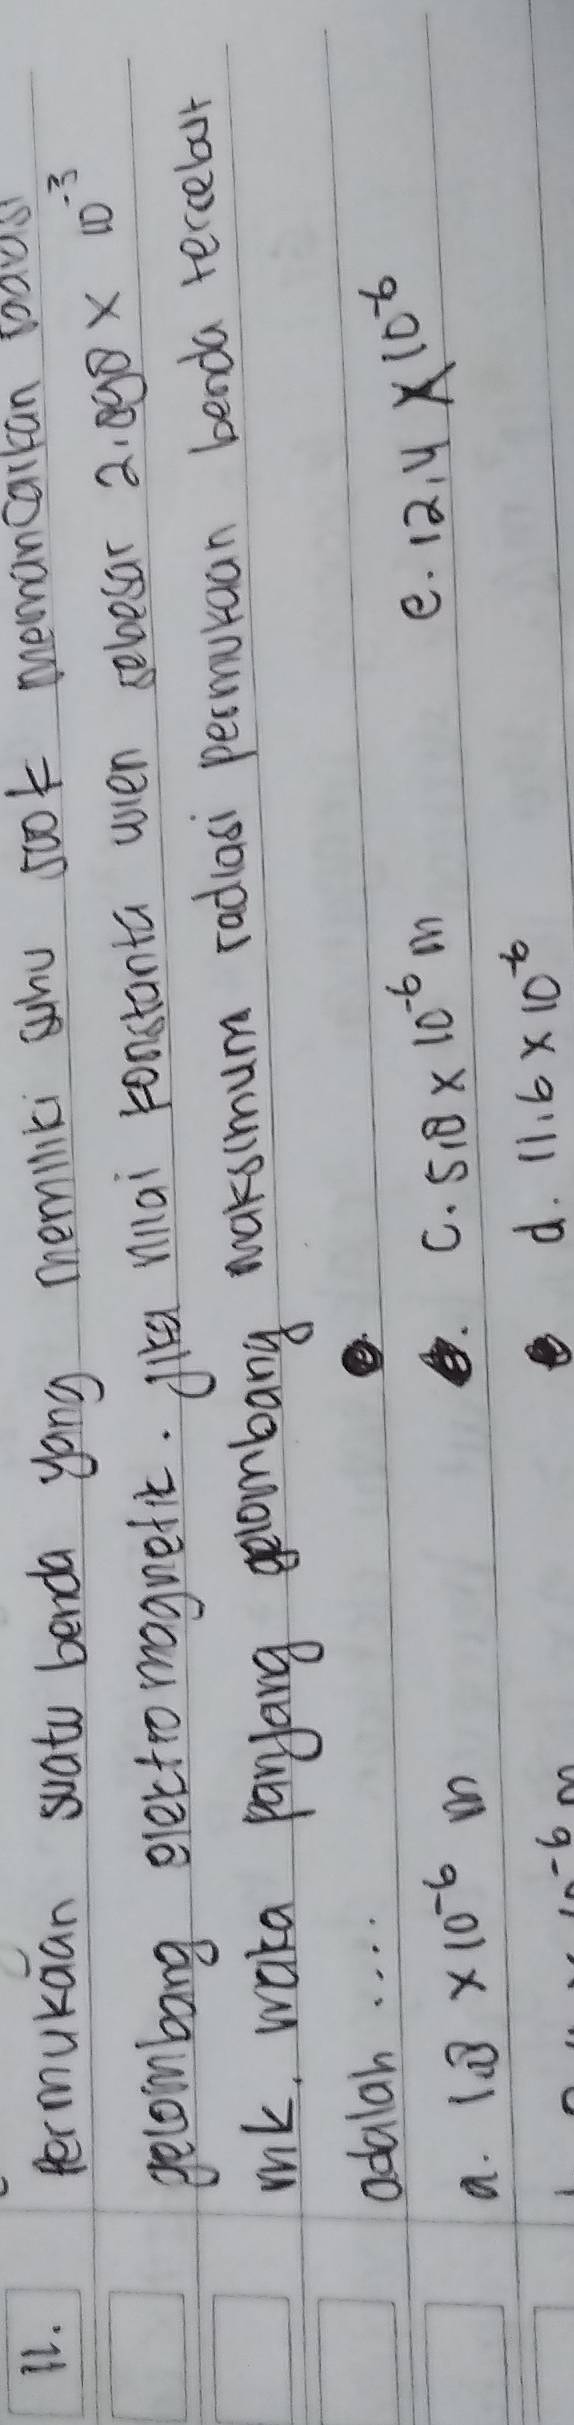 11. Permukaan suatu benda yang memiliki suhu 500 K memancarkan radiasi
gelombang elektromagnetik. Jika nilai konstanta wien sebesar 2.898 x 10⁻³
mk, maka panjang gelombang maksimum radiasi permukaan benda tersebut
adalah ....
a. 1,8 x 10⁻⁶ m c. 5,8 x 10⁻⁶ m e. 12,4 x 10⁻⁶
d. 11,6 x 10⁻⁶